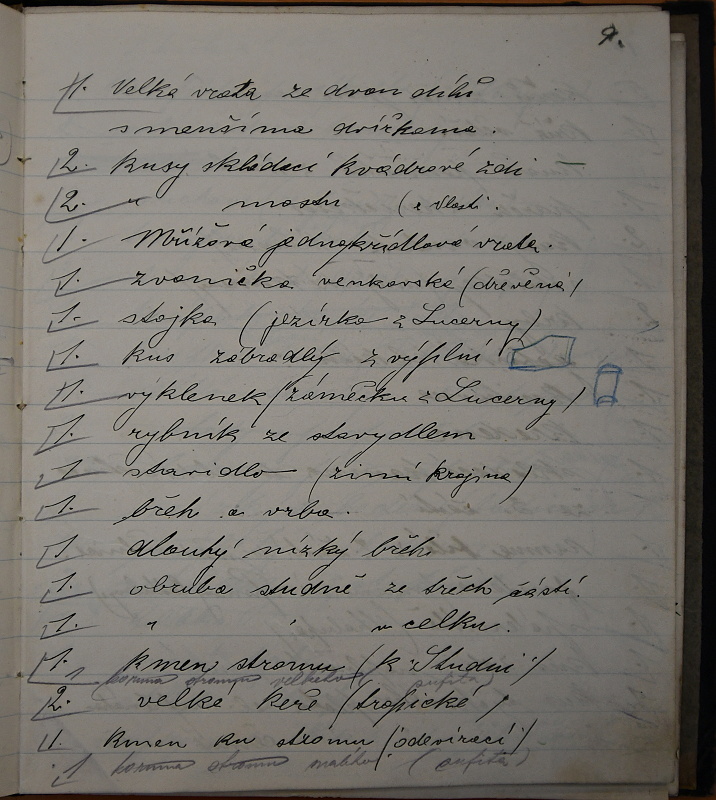 9.
1. Velká vrata ze dvou dílů
s menšíma dvířkama.
2. kusy skládací kvádrové zdi —
2. " mostu (z Vlasti.
1. Mřížová jednokřídlová vrata.
1. zvonička venkovská (dřevěná)
1. stojka (jezírko z Lucerny)
1. kus zábradlý z výplní
1. výklenek (zámečku z Lucerny)
1. rybník ze stavydlem
1. stavidlo (zimní krajina)
1. břeh a vrba.
1. dlouhý nízký břeh
1. obruba studně ze třech částí.
1. " " v celku.
1. Kmen stromu (k Studni)
1 koruna stromu velkého sufita
2. velké keře (tropické)
1. kmen ku stromu (odevírací)
1 koruna stromu malého (sufita)